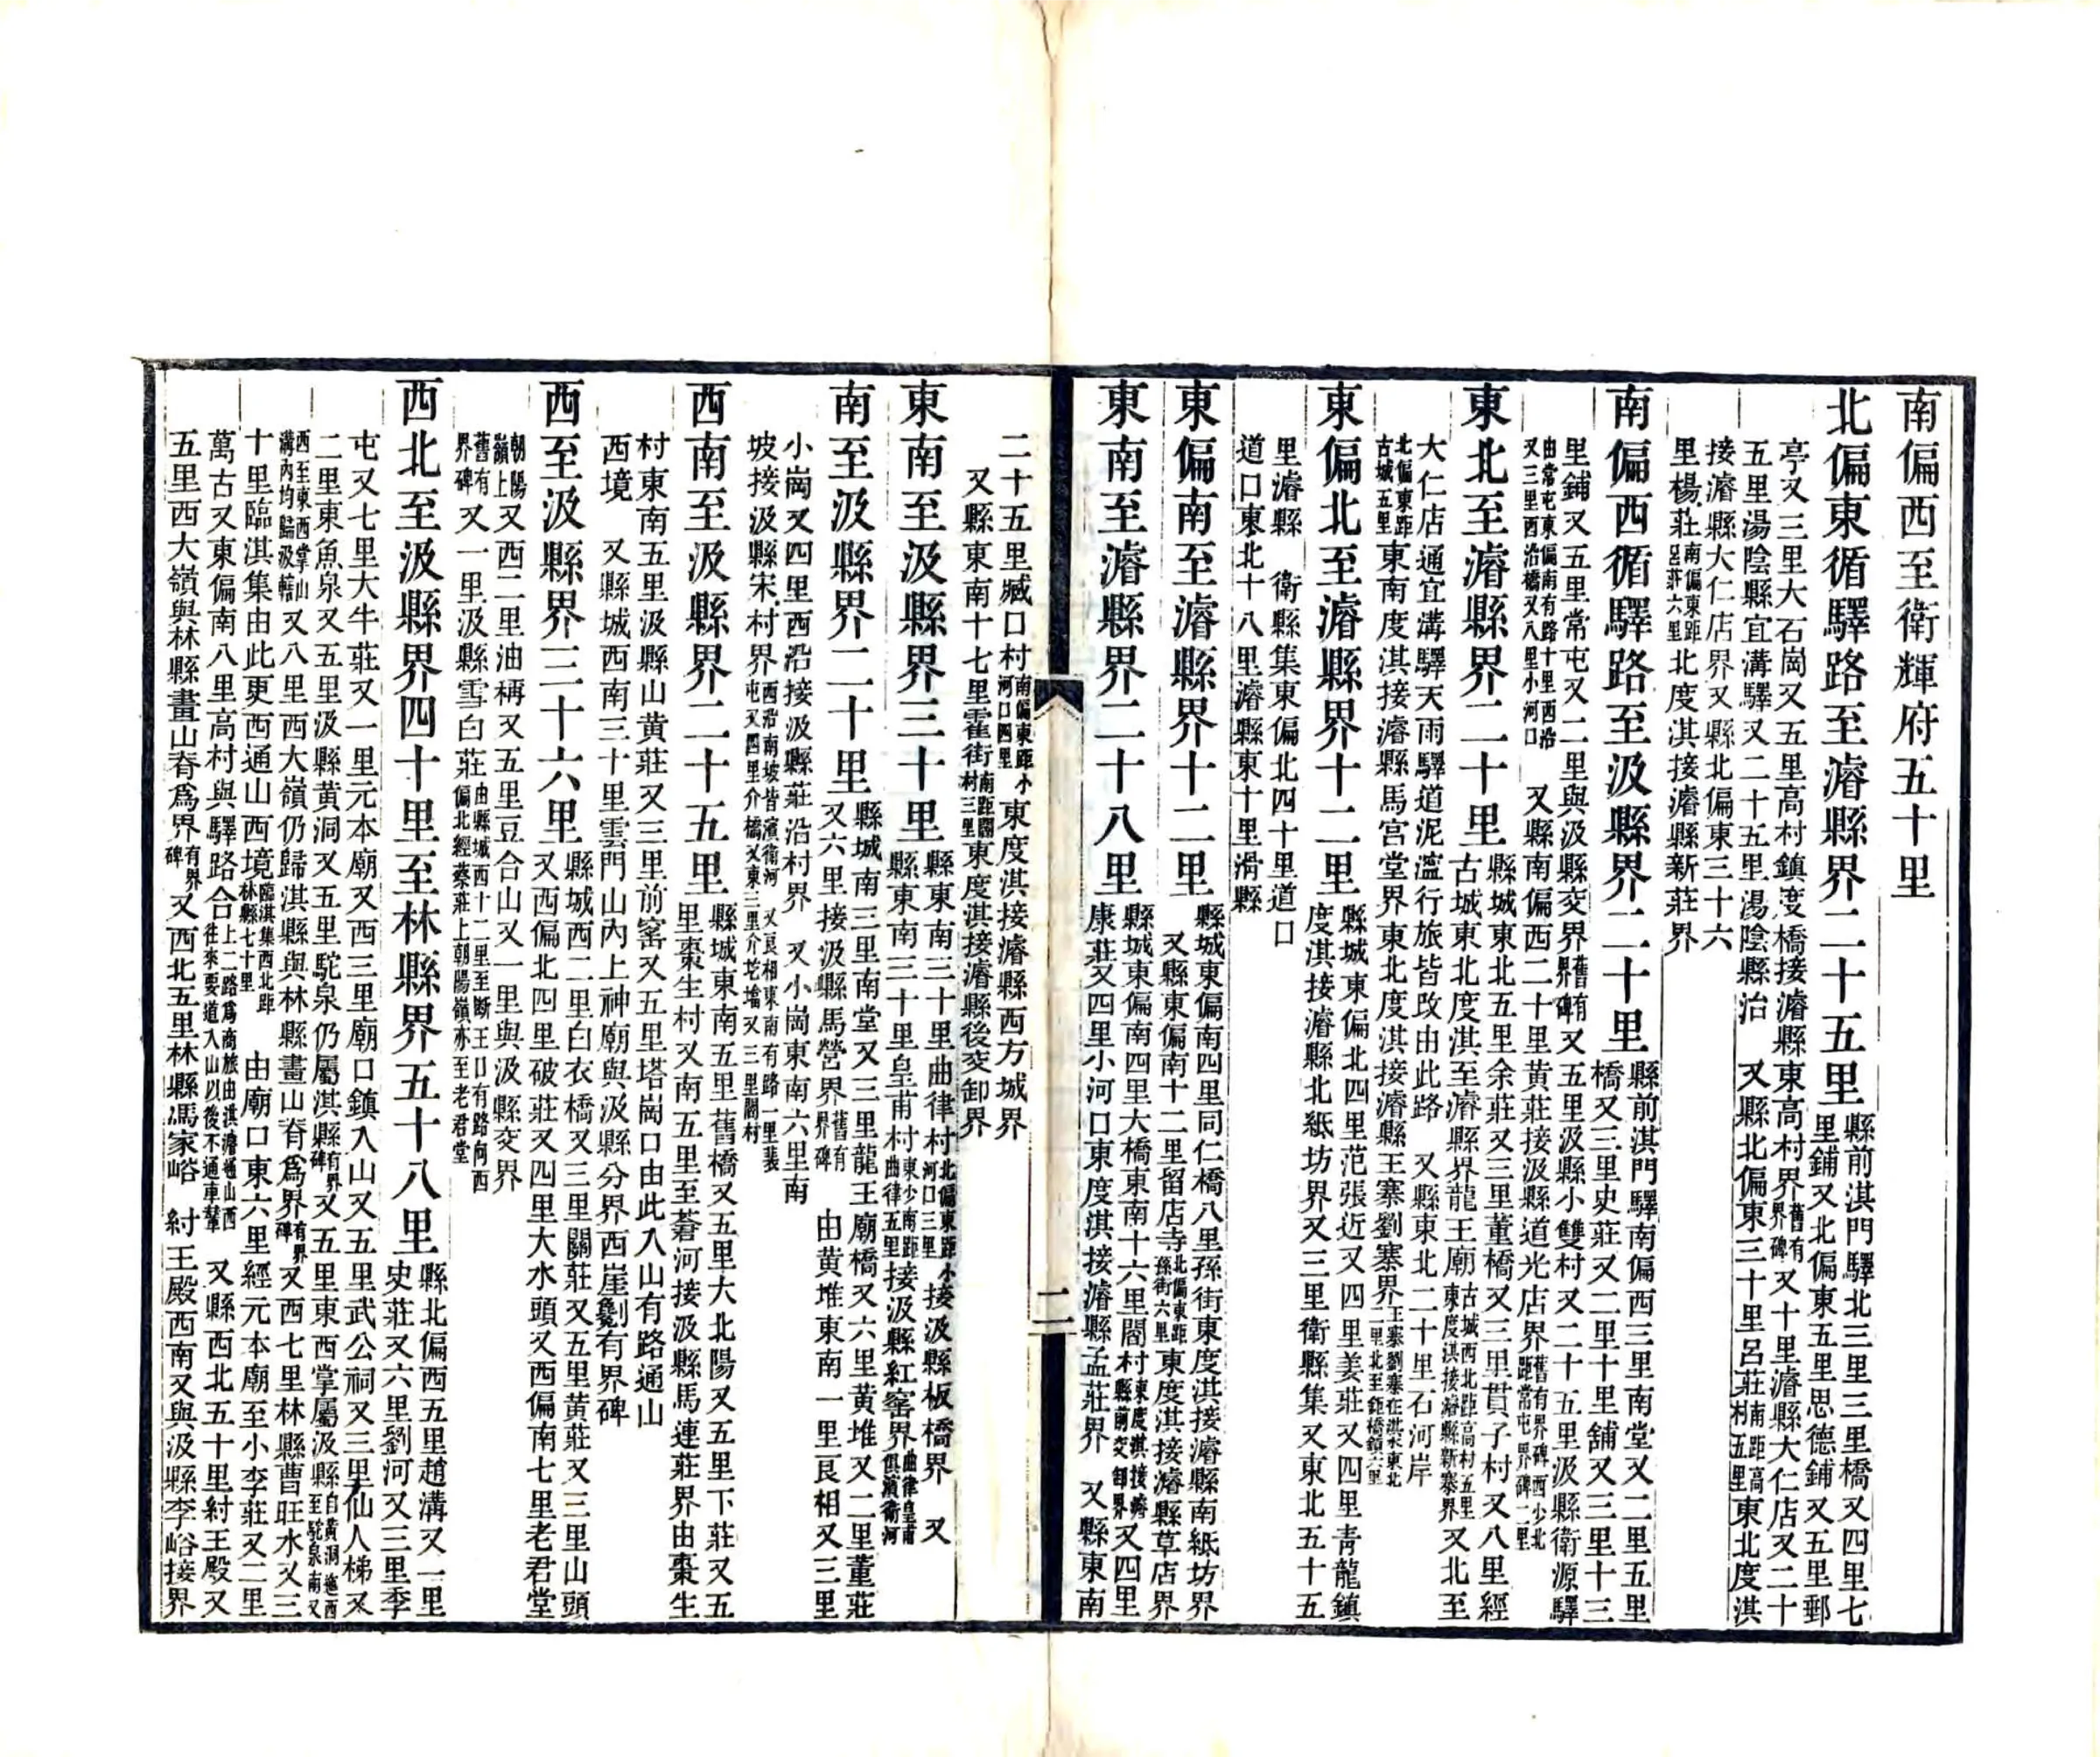 南偏西至衛輝府五十里
北偏東循驛路至濬縣界二十五里
縣前淇門驛北三里三里橋又四里七
里鋪又北偏東五里思德鋪又五里郵
亭又三里大石崗又五里高村鎮度橋接濬縣東高村界舊有界碑又十里濬縣大仁店又二十
五里湯陰縣宜溝驛又二十五里湯陰縣治　又縣北偏東三十里呂莊南距高村五里東北度淇
接濬縣大仁店界又縣北偏東三十六
里楊莊南偏東距呂莊六里北度淇接濬縣新莊界
南偏西循驛路至汲縣界二十里
縣前淇門驛南偏西三里南堂又二里五里
橋又三里史莊又二里十里舖又三里十三
里鋪又五里常屯又二里與汲縣交界舊有界碑又五里汲縣小雙村又二十五里汲縣衛源驛
由常屯東偏南有路十里西沿又三里西沿橋又八里小河口　又縣南偏西二十里黄莊接汲縣道光店界舊有界碑西少北距常屯界碑二里
東北至濬縣界二十里
縣城東北五里余莊又三里董橋又三里貫子村又八里經
古城東北度淇至濬縣界龍王廟古城西北距高村五里東度淇接濬縣新寨界又北至
大仁店通宜溝驛天雨驛道泥濘行旅皆改由此路　又縣東北二十里石河岸
北偏東距古城五里東南度淇接濬縣馬宮堂界東北度淇接濬縣王寨劉寨界王寨劉寨在淇東東北二里北至鉅橋鎮六里
東偏北至濬縣界十二里
縣城東偏北四里范張近又四里姜莊又四里靑龍鎮
度淇接濬縣北紙坊界又三里衛縣集又東北五十五
里濬縣　衛縣集東偏北四十里道口
道口東北十八里濬縣東十里滑縣
東偏南至濬縣界十二里
縣城東偏南四里同仁橋八里孫街東度淇接濬縣南紙坊界
又縣東偏南十二里留店寺北偏東距孫街六里東度淇接濬縣草店界
東南至濬縣界二十八里
縣城東偏南四里大橋東南十六里閻村東度淇接濬縣前交卸界又四里
康莊又四里小河口東度淇接濬縣孟莊界　又縣東南
二
二十五里臧口村南偏東距小河口四里東度淇接濬縣西方城界
又縣東南十七里霍街南距閻村三里東度淇接濬縣後交卸界
東南至汲縣界三十里
縣東南三十里曲律村北偏東距小河口三里接汲縣板橋界　又
縣東南三十里皇甫村東少南距曲律五里接汲縣紅窰界曲律皇甫俱濱衛河
南至汲縣界二十里
縣城南三里南堂又三里龍王廟橋又六里黄堆又二里董莊
又六里接汲縣馬營界舊有界碑　由黄堆東南一里良相又三里
小崗又四里西沿接汲縣莊沿村界　又小崗東南六里南
坡接汲縣宋村界西沿南坡皆濱衛河　又良相東南有路一里裴屯又四里介橋又東三里介圪壋又三里閻村
西南至汲縣界二十五里
縣城東南五里舊橋又五里大北陽又五里下莊又五
里棗生村又南五里至蒼河接汲縣馬連莊界由棗生
村東南五里汲縣山黄莊又三里前窰又五里塔崗口由此入山有路通山
西境　又縣城西南三十里雲門山內上神廟與汲縣分界西崖劖有界碑
西至汲縣界三十六里
縣城西二里白衣橋又三里關莊又五里黄莊又三里山頭
又西偏北四里破莊又四里大水頭又西偏南七里老君堂
朝陽嶺上又西二里油稱又五里豆合山又一里與汲縣交界
舊有界碑又一里汲縣雪白莊由縣城西十二里至断王口有路向西偏北經蔡莊上朝陽嶺亦至老君堂
西北至汲縣界四十里至林縣界五十八里
縣北偏西五里趙溝又一里
史莊又六里劉河又三里季
屯又七里大牛莊又一里元本廟又西三里廟口鎮入山又五里武公祠又三里仙人梯又
二里東魚泉又五里汲縣黄洞又五里駝泉仍屬淇縣有界碑又五里東西掌屬汲縣自黄洞迤西至駝泉南又
西至東西掌山溝內均歸汲轄又八里西大嶺仍歸淇縣與林縣畫山脊爲界有界碑又西七里林縣曹旺水又三
十里臨淇集由此更西通山西境臨淇集西北距林縣七十里　由廟口東六里經元本廟至小李莊又二里
萬古又東偏南八里高村與驛路合上二路爲商旅由淇濬通山西往來要道入山以後不通車輦　又縣西北五十里紂王殿又
五里西大嶺與林縣畫山脊爲界有界碑又西北五里林縣馮家峪　紂王殿西南又與汲縣李峪接界